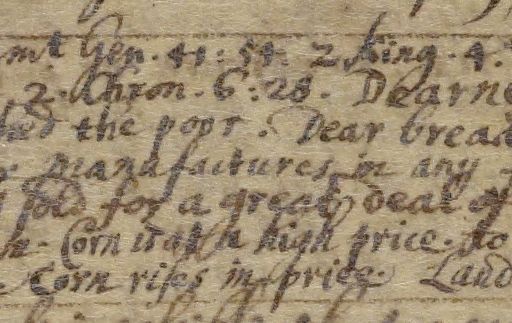 Gen. 41: 54. 2 King. 4.
2. Chron. 6: 28. Dearne
the poor. Dear bread
manufactures in any
sold for a great Deal of
Corn is at a high price. to
Corn rises in price. Land